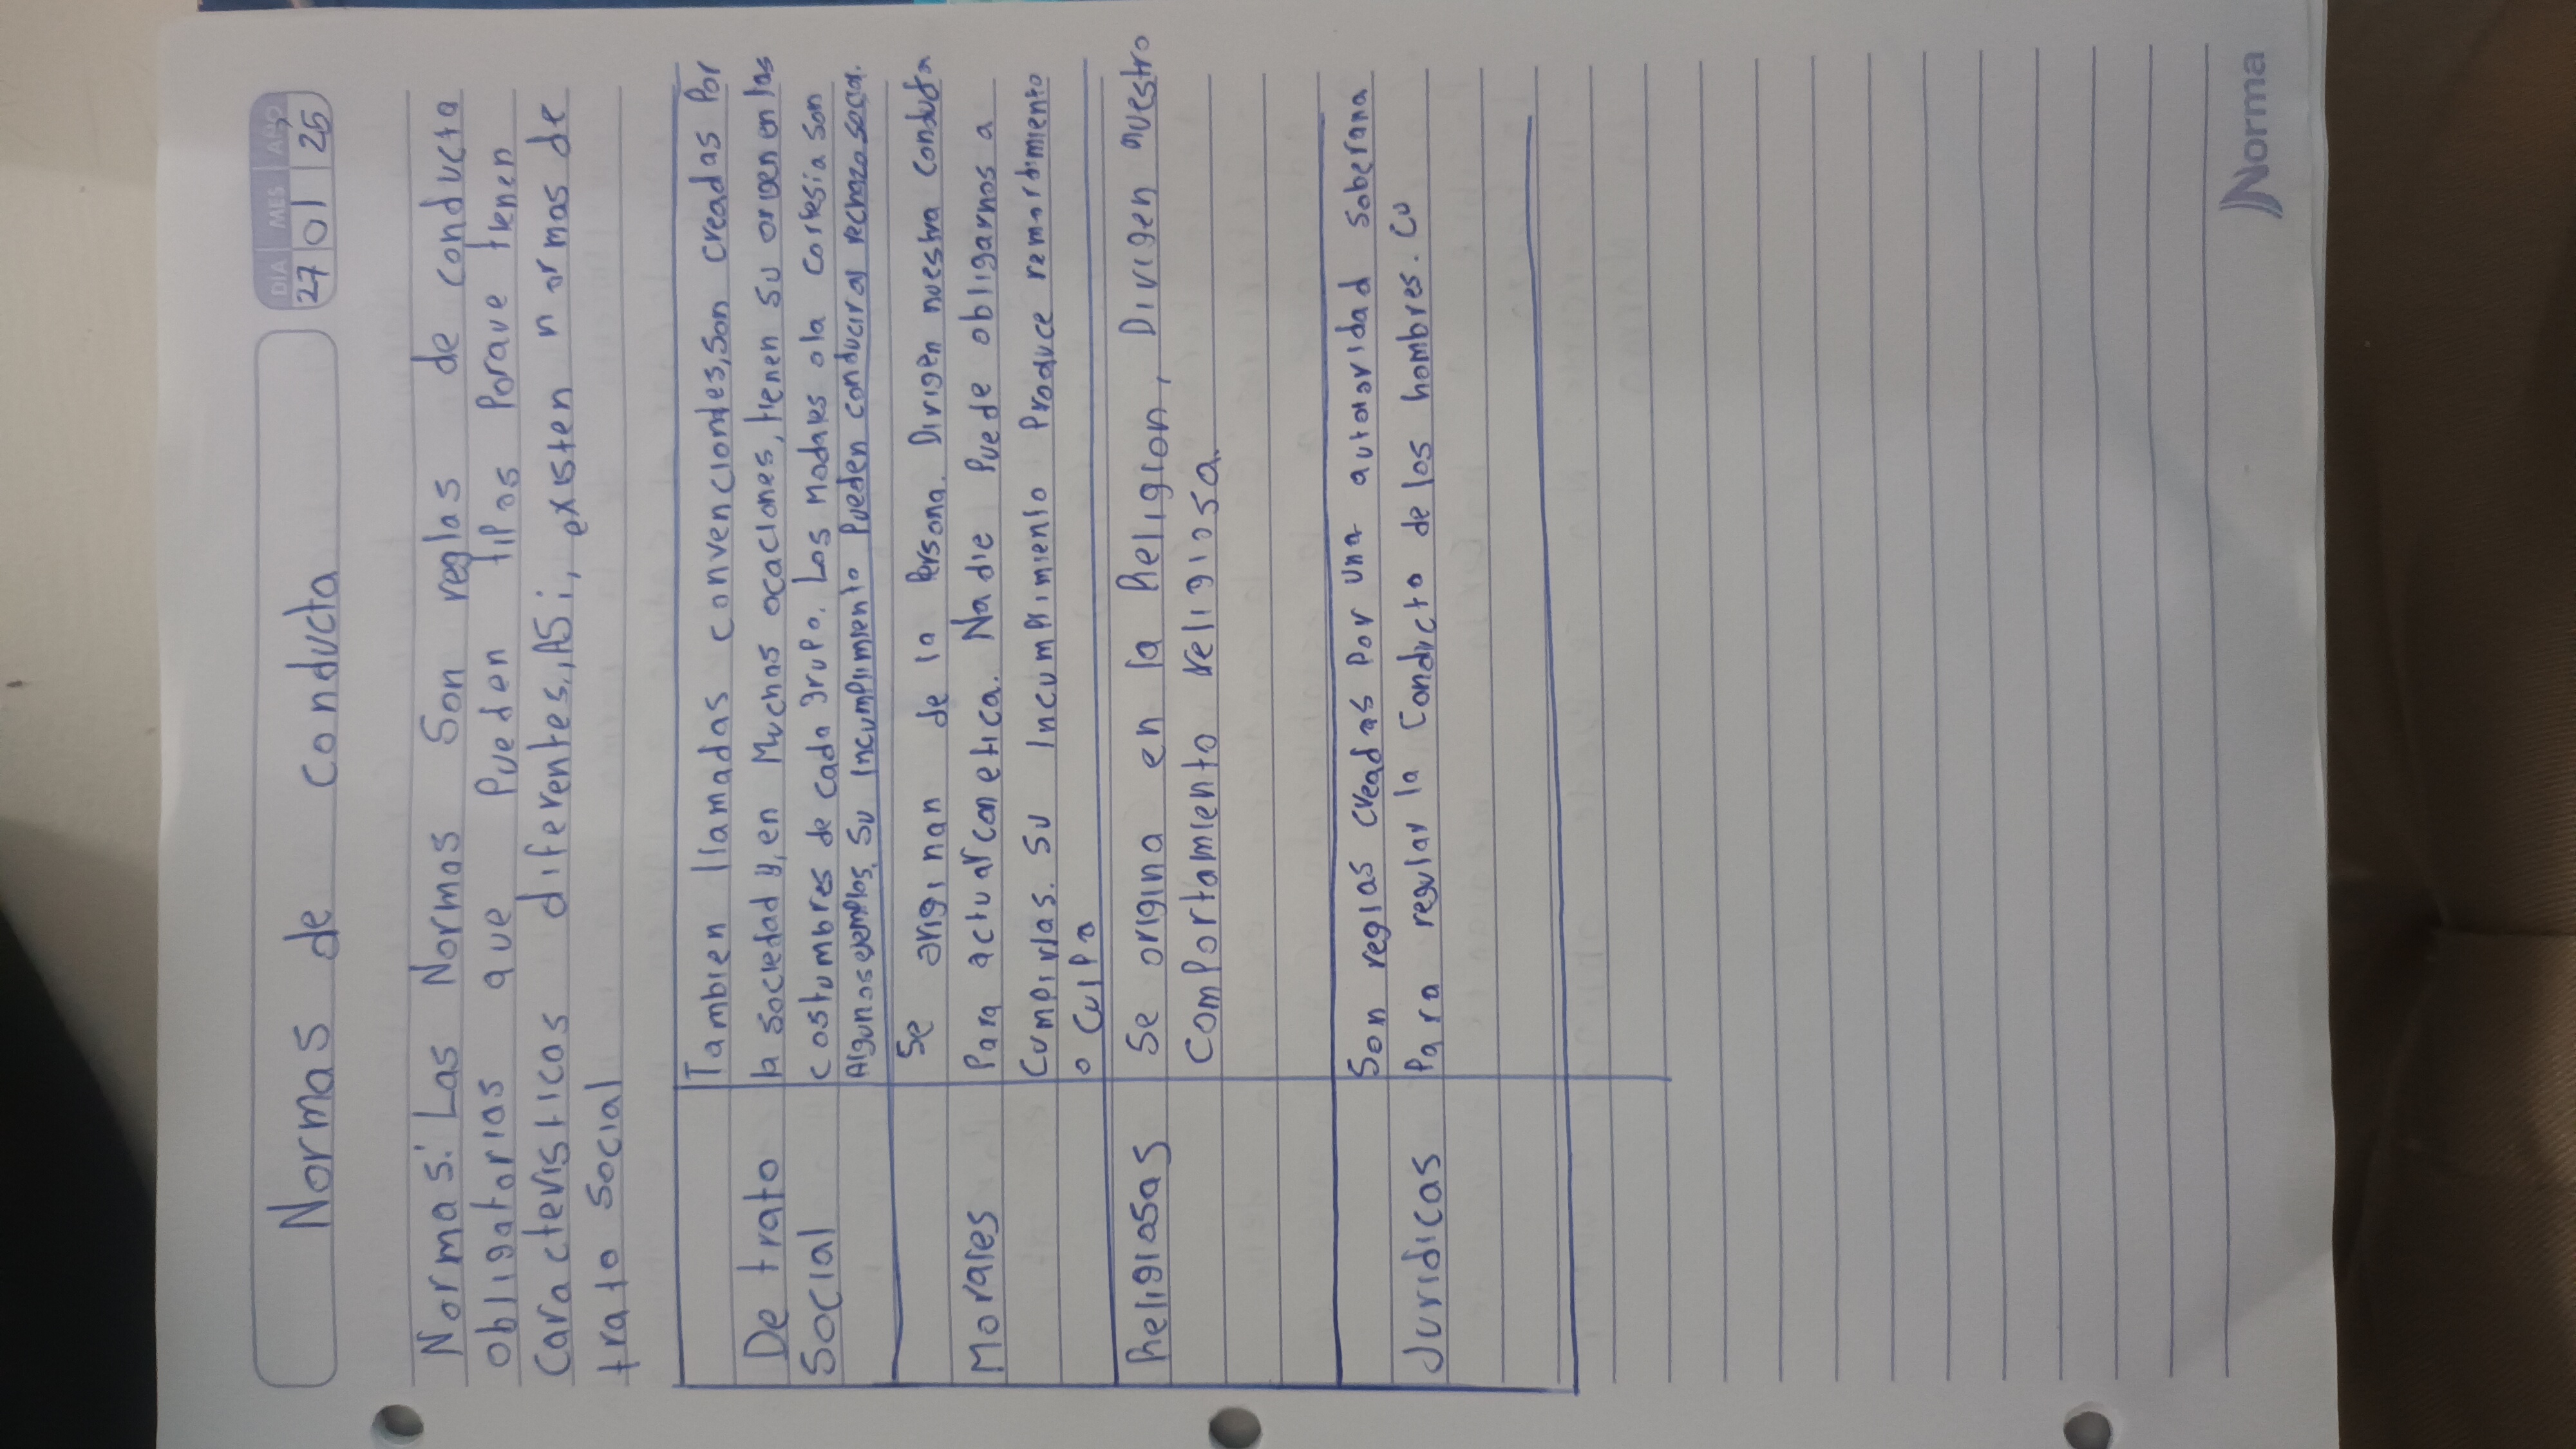 Normas de conducta
DIA MES AÑO
27 01 25
Normas: Las Normas Son reglas de conducta
obligatorias que Pueden tipos Porque tienen
Caracteristicas diferentes, ASi, existen normas de
trato social
Tambien llamadas convenciones, Son creadas Por
De trato la sociedad y, en Muchas ocaciones, tienen Su origen en las
Social costumbres de cada grupo. Los Modales o la cortesia son
Algunos ejemplos. Su Incumplimiento Pueden conducir al rechazo social.
Se originan de la Persona. Dirigen nuestra conducta
Morales Para actuar con etica. Nadie Puede obligarnos a
Cumplirlas. Su Incumplimiento Produce remordimiento
o Culpa
Religiosas Se origina en la Religion, Dirigen nuestro
Comportamiento religiosa
Son reglas creadas Por una autororidad Soberana
Juridicas Para regular la Conducta de los hombres. Cu
Norma